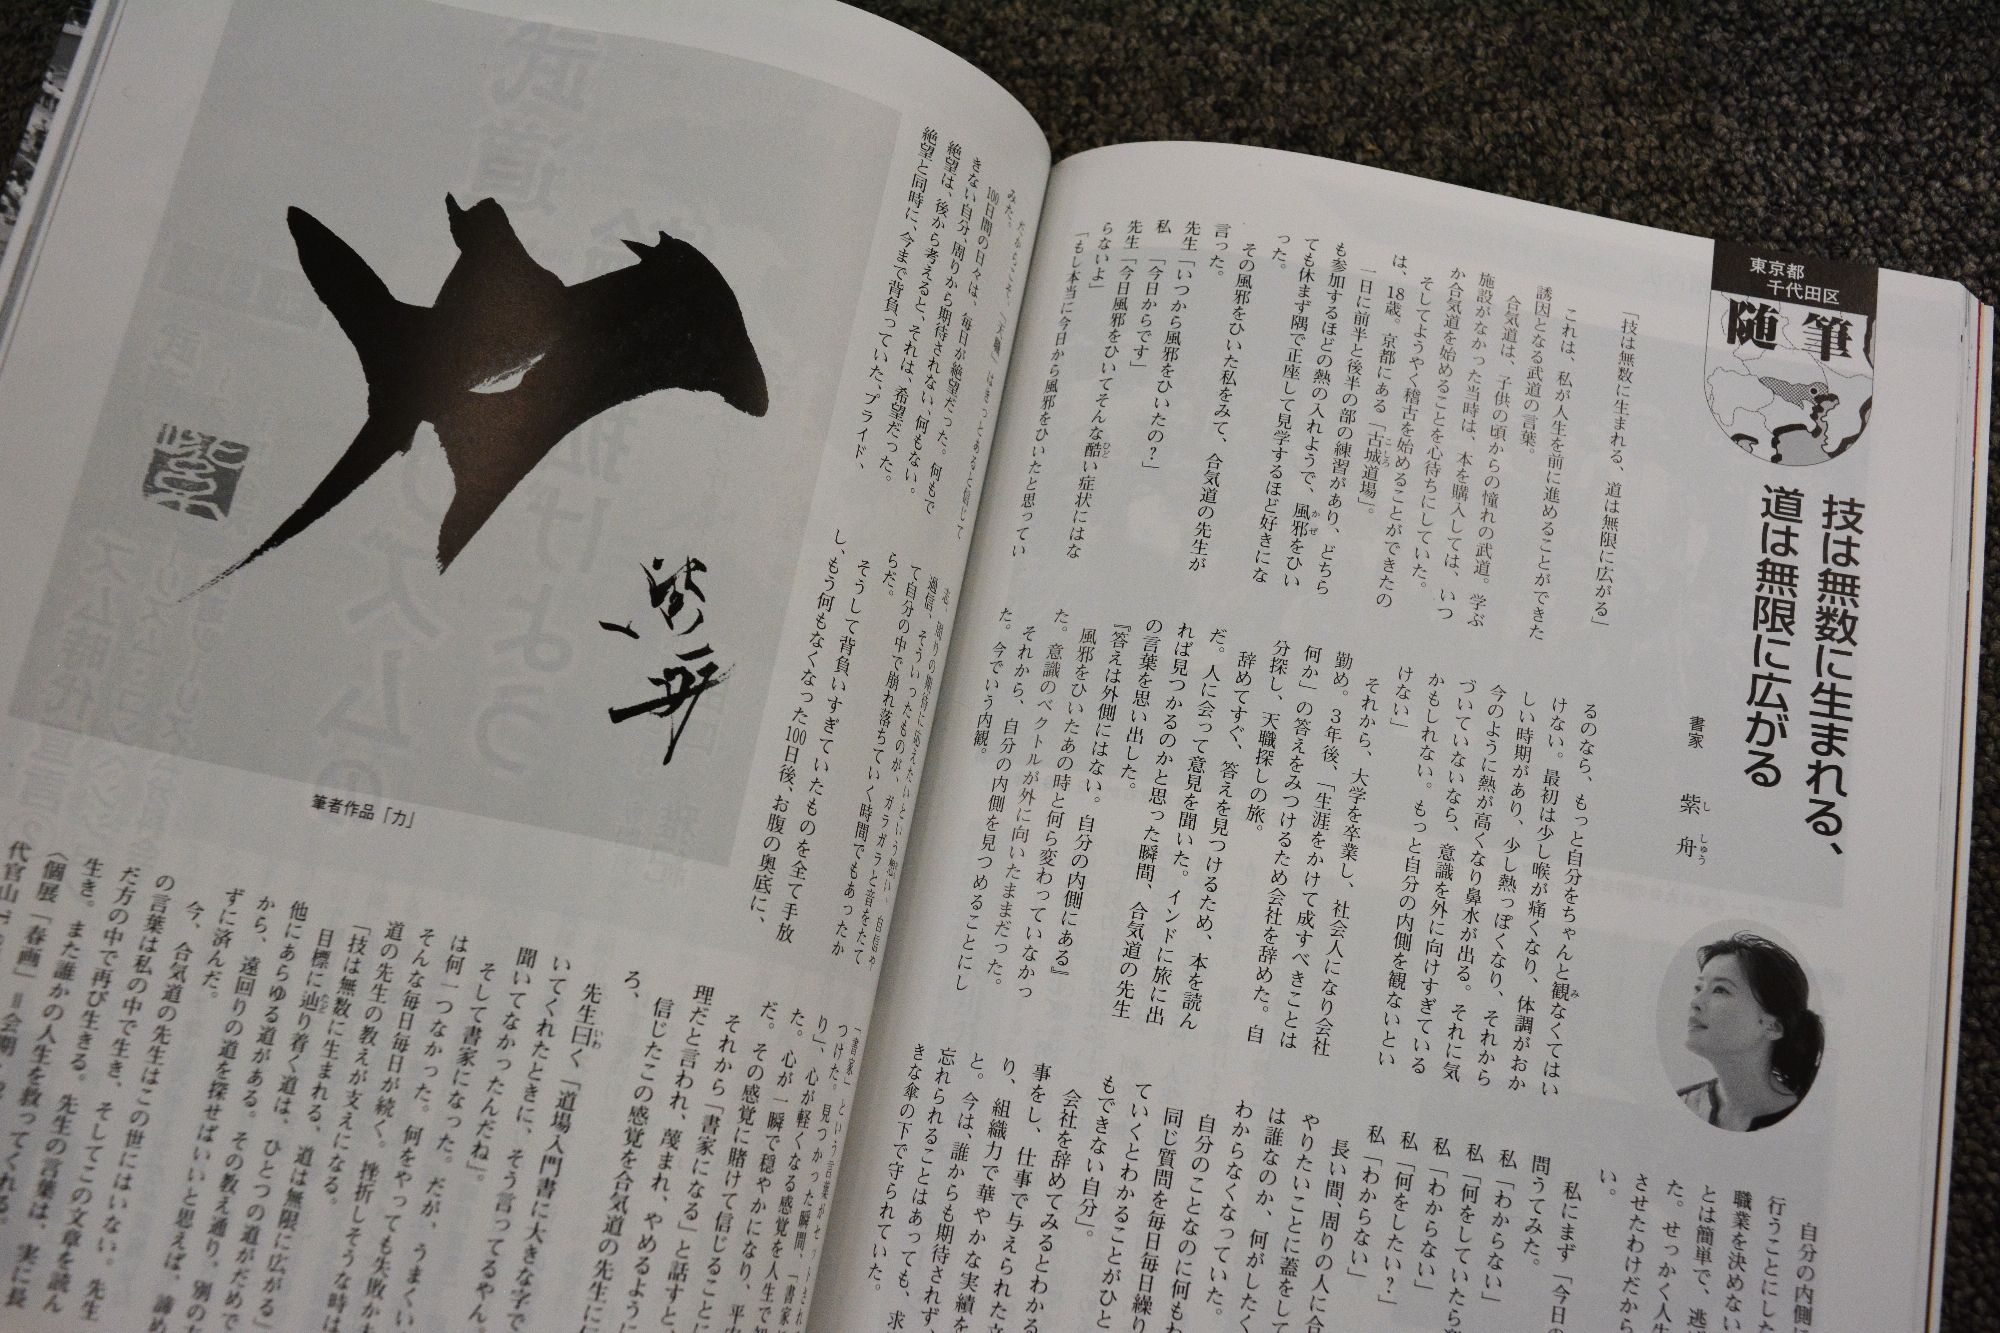 東京都
千代田区
随筆
技は無数に生まれる、
道は無限に広がる
書家
紫舟
し しゅう
「技は無数に生まれる、道は無限に広がる」
これは、私が人生を前に進めることができた
誘因となる武道の言葉。
合気道は、子供の頃からの憧れの武道。学ぶ
施設がなかった当時は、本を購入しては、いつ
か合気道を始めることを心待ちにしていた。
そしてようやく稽古を始めることができたの
は、18歳。京都にある「古城道場」。
一日に前半と後半の部の練習があり、どちら
も参加するほどの熱の入れようで、風邪をひい
ても休まず隅で正座して見学するほど好きにな
った。
その風邪をひいた私をみて、合気道の先生が
言った。
先生「いつから風邪をひいたの？」
私 「今日からです」
先生「今日風邪をひいてそんな酷い症状にはな
らないよ」
「もし本当に今日から風邪をひいたと思ってい
るのなら、もっと自分をちゃんと観なくてはい
けない。最初は少し喉が痛くなり、体調がおか
しい時期があり、少し熱っぽくなり、それから
今のように熱が高くなり鼻水が出る。それに気
づいていないなら、意識を外に向けすぎている
かもしれない。もっと自分の内側を観ないとい
けない」
それから、大学を卒業し、社会人になり会社
勤め。３年後、「生涯をかけて成すべきことは
何か」の答えをみつけるため会社を辞めた。自
分探し、天職探しの旅。
辞めてすぐ、答えを見つけるため、本を読ん
だ。人に会って意見を聞いた。インドに旅に出
れば見つかるのかと思った瞬間、合気道の先生
の言葉を思い出した。
『答えは外側にはない。自分の内側にある』
風邪をひいたあの時と何ら変わっていなかっ
た。意識のベクトルが外に向いたままだった。
それから、自分の内側を見つめることにし
た。今でいう内観。
自分の内側に
行うことにした
職業を決めない
とは簡単で、逃
た。せっかく人生
させたわけだから
い。
私にまず「今日の
問うてみた。
私「わからない」
私「何をしていたら
私「わからない」
私「何をしたい？」
私「わからない」
長い間、周りの人に合
やりたいことに蓋をして
は誰なのか、何がしたく
わからなくなっていた。
自分のことなのに何もわ
同じ質問を毎日毎日繰り
ていくとわかることがひと
もできない自分」。
会社を辞めてみるとわかる
事をし、仕事で与えられた
り、組織力で華やかな実績を
と。今は、誰からも期待されず、
忘れられることはあっても、求
きな傘の下で守られていた。
みた。
100日間の日々は、毎日が絶望だった。何もで
きない自分、周りから期待されない、何もない。
絶望は、後から考えると、それは、希望だった。
絶望と同時に、今まで背負っていた、プライド、
過信、そういったものが、ガラガラと音をたて
て自分の中で崩れ落ちていく時間でもあったか
らだ。
そうして背負いすぎていたものを全て手放
し、もう何もなくなった100日後、お腹の奥底に、
つけた。見つかった瞬間、「書家
り」、心が軽くなる感覚を人生で
た。心が一瞬で穏やかになり、平
だ。その感覚に賭けて信じること
それから「書家になる」と話すと、
理だと言われ、蔑まれ、やめるように
信じたこの感覚を合気道の先生に
ろ、
先生曰く「道場入門書に大きな字で
いてくれたときに、そう言ってるやん。
聞いてなかったんだね」。
そして書家になった。だが、うまくい
は何一つなかった。何をやっても失敗か
そんな毎日毎日が続く。挫折しそうな時は
道の先生の教えが支えになる。
「技は無数に生まれる、道は無限に広がる」
目標に辿り着く道は、ひとつの道がだめで
他にあらゆる道がある。その教え通り、別の
から、遠回りの道を探せばいいと思えば、諦め
ずに済んだ。
今、合気道の先生はこの世にはいない。先生
の言葉は私の中で生き、そしてこの文章を読ん
だ方の中で再び生きる。先生の言葉は、実に長
生き。また誰かの人生を救ってくれる。
〈個展「春画」＝会期
代官山
筆者作品「力」
紫舟